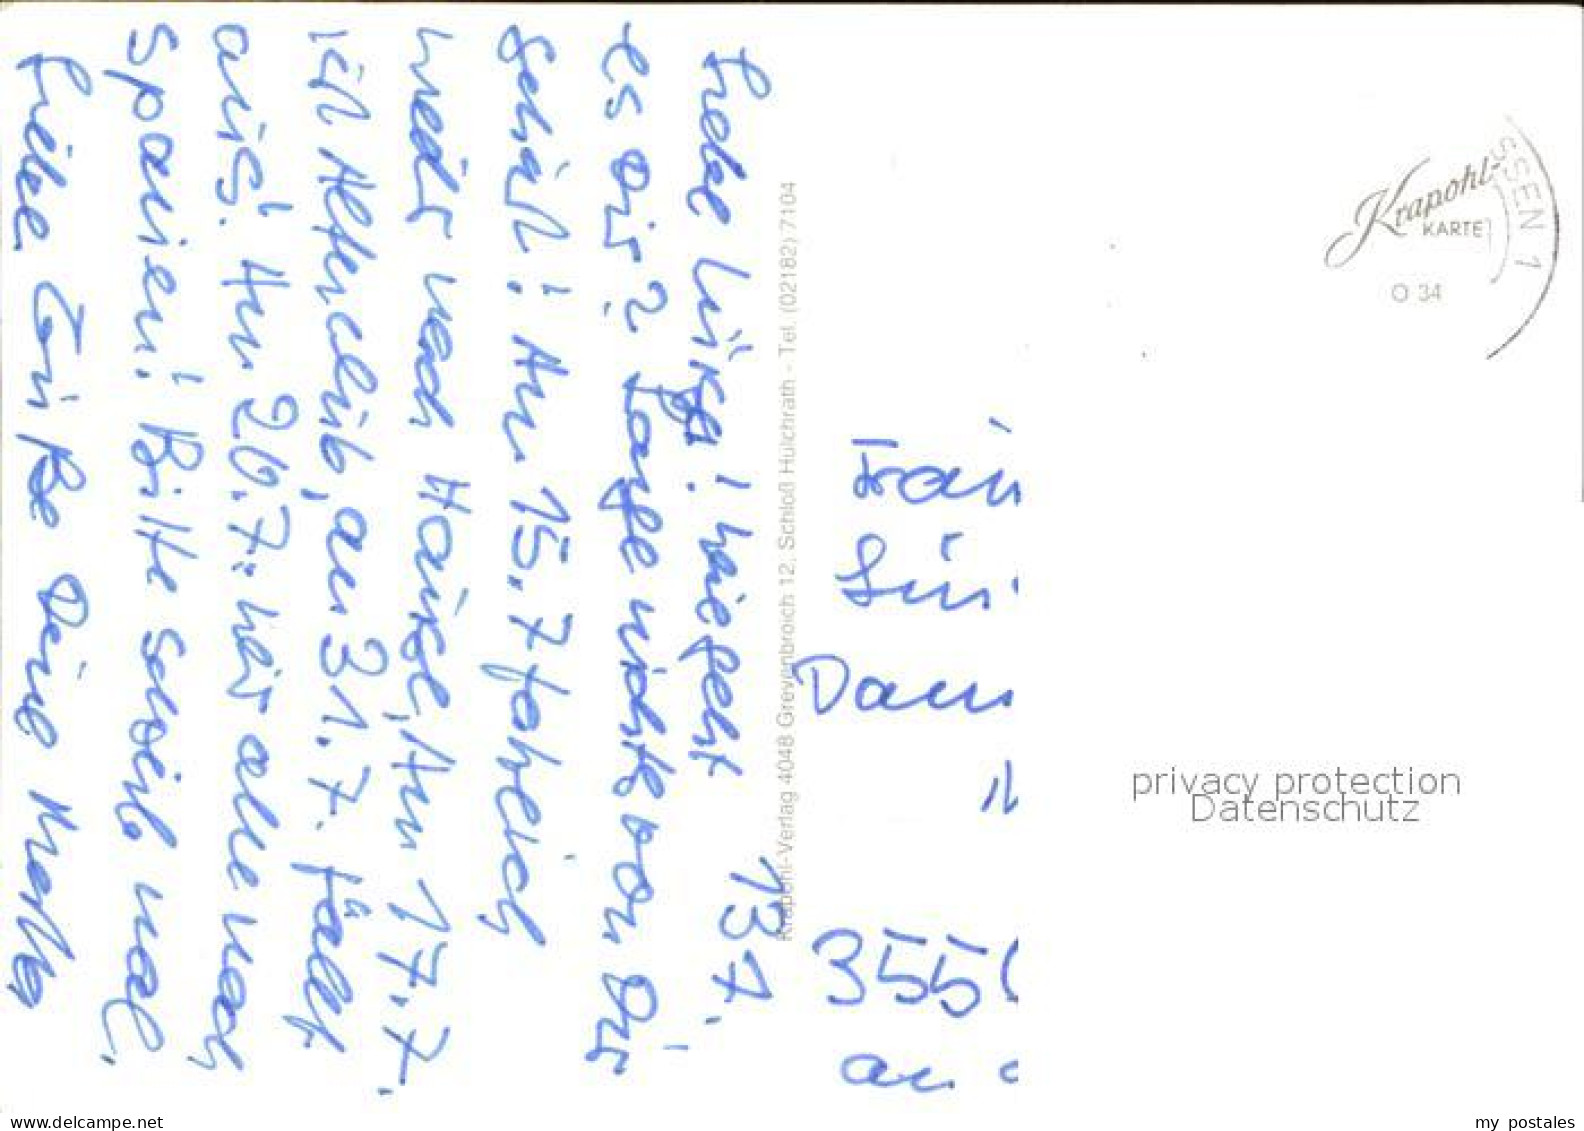 13.7.
Liebe Lüka! Wie geht
es dir? Lange nichts von Dir
gehört! Am 15.7 fahre ich
wieder nach Hause, Am 17.7.
ich Alterclub, am 31.7. fällt
aus! Am 20.7: wir alle nach
Spanien! Bitte schreib mal.
Liebe Grüße Deine Marlo
Krapohl-Verlag 4048 Grevenbroich 12, Schloß Hülchrath - Tel. (02182) 7104
Krapohl-
KARTE
O 34
SSEN 1
Frau
Dam
355
an
privacy protection
Datenschutz
my postales
www.delcampe.net